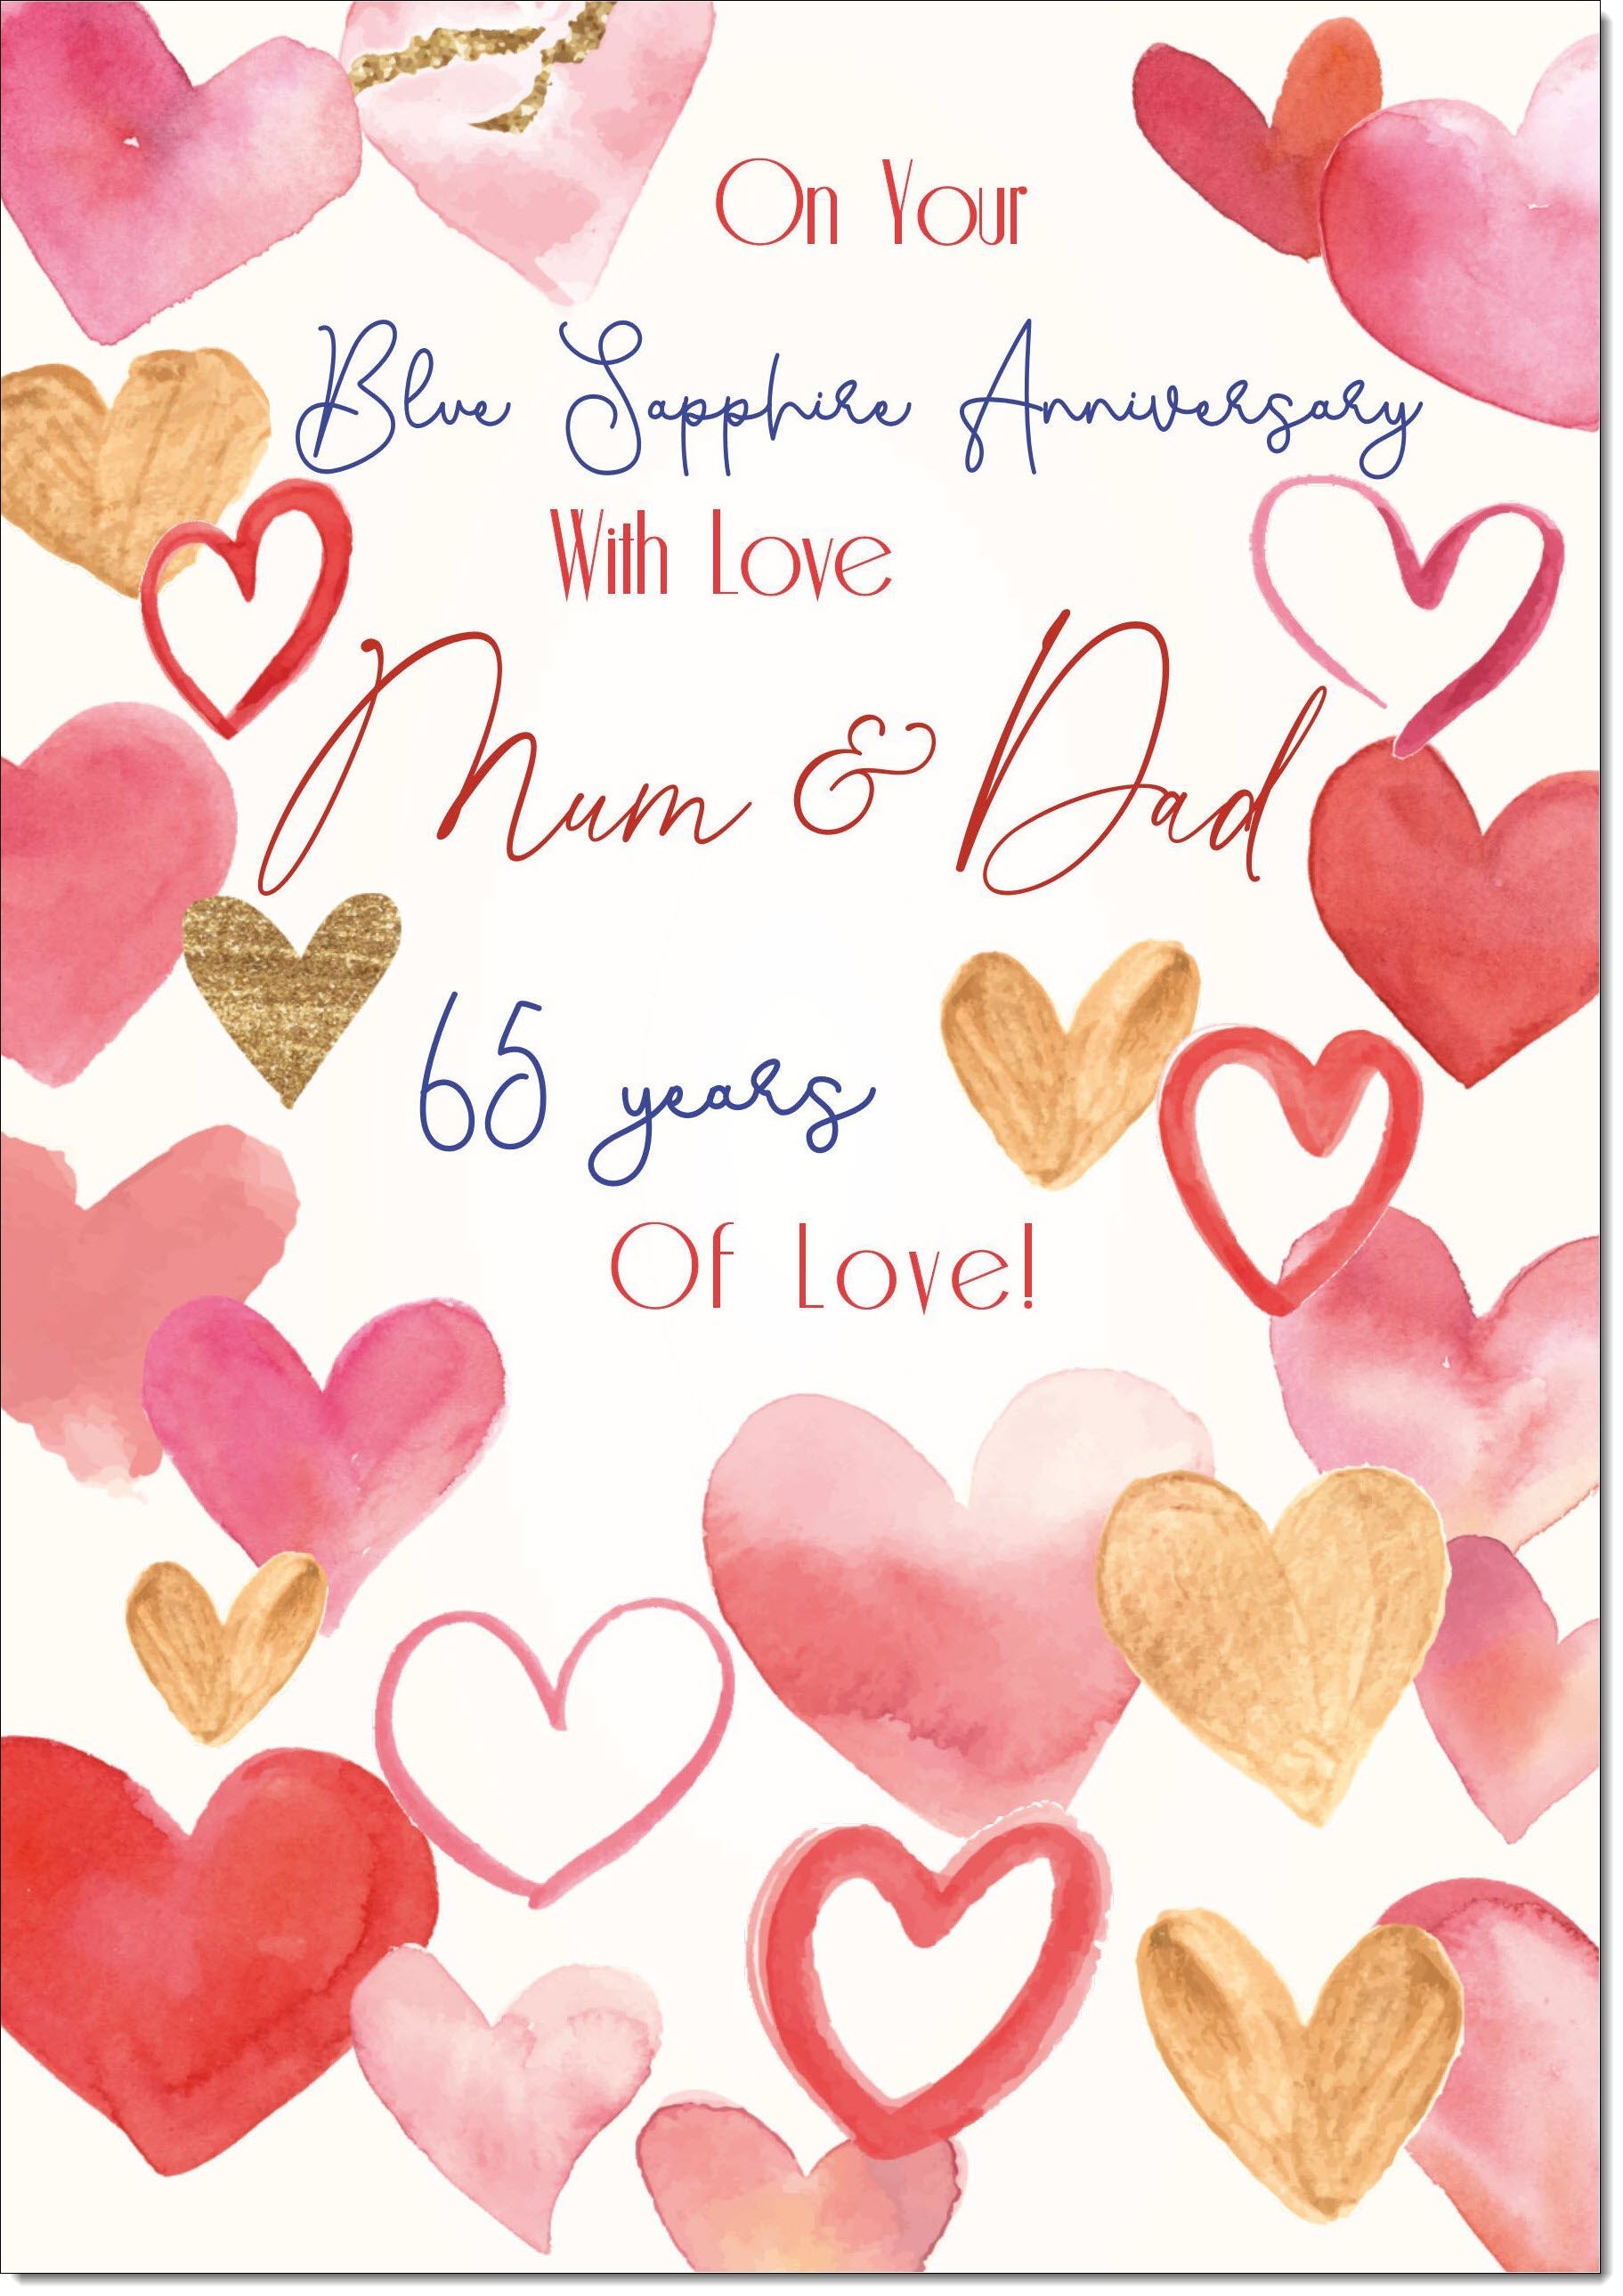 On Your
Blue Sapphire Anniversary
With Love
Mum & Dad
65 years
Of Love!